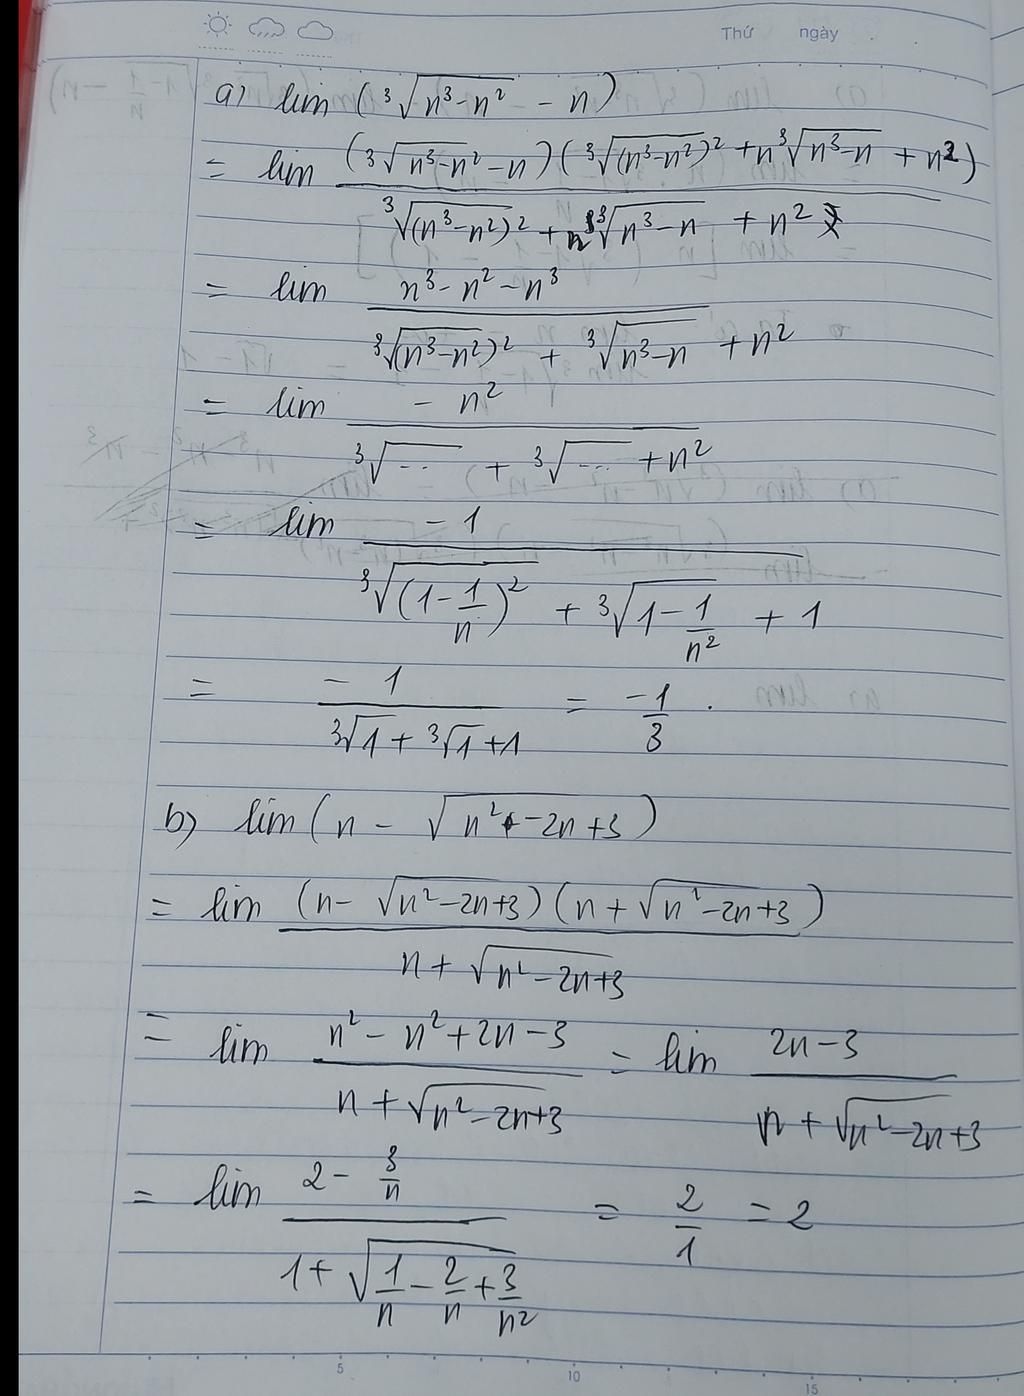 Thứ ngày
a) lim (³√(n³-n²) - n)
= lim (³√(n³-n²) - n)(³√((n³-n²)²) + n³√(n³-n) + n²) / (³√((n³-n²)²) + n³√(n³-n) + n²)
= lim (n³ - n² - n³) / (³√((n³-n²)²) + ³√(n³-n) + n²)
= lim -n² / (³√... + ³√... + n²)
= lim -1 / (³√((1-1/n)²) + ³√(1-1/n²) + 1)
= -1 / (³√1 + ³√1 + 1) = -1/3 .
b) lim (n - √(n²-2n+3))
= lim (n - √(n²-2n+3))(n + √(n²-2n+3)) / (n + √(n²-2n+3))
= lim (n² - n² + 2n - 3) / (n + √(n²-2n+3)) = lim (2n-3) / (n + √(n²-2n+3))
= lim (2 - 3/n) / (1 + √(1/n - 2/n + 3/n²)) = 2/1 = 2
5 10 15